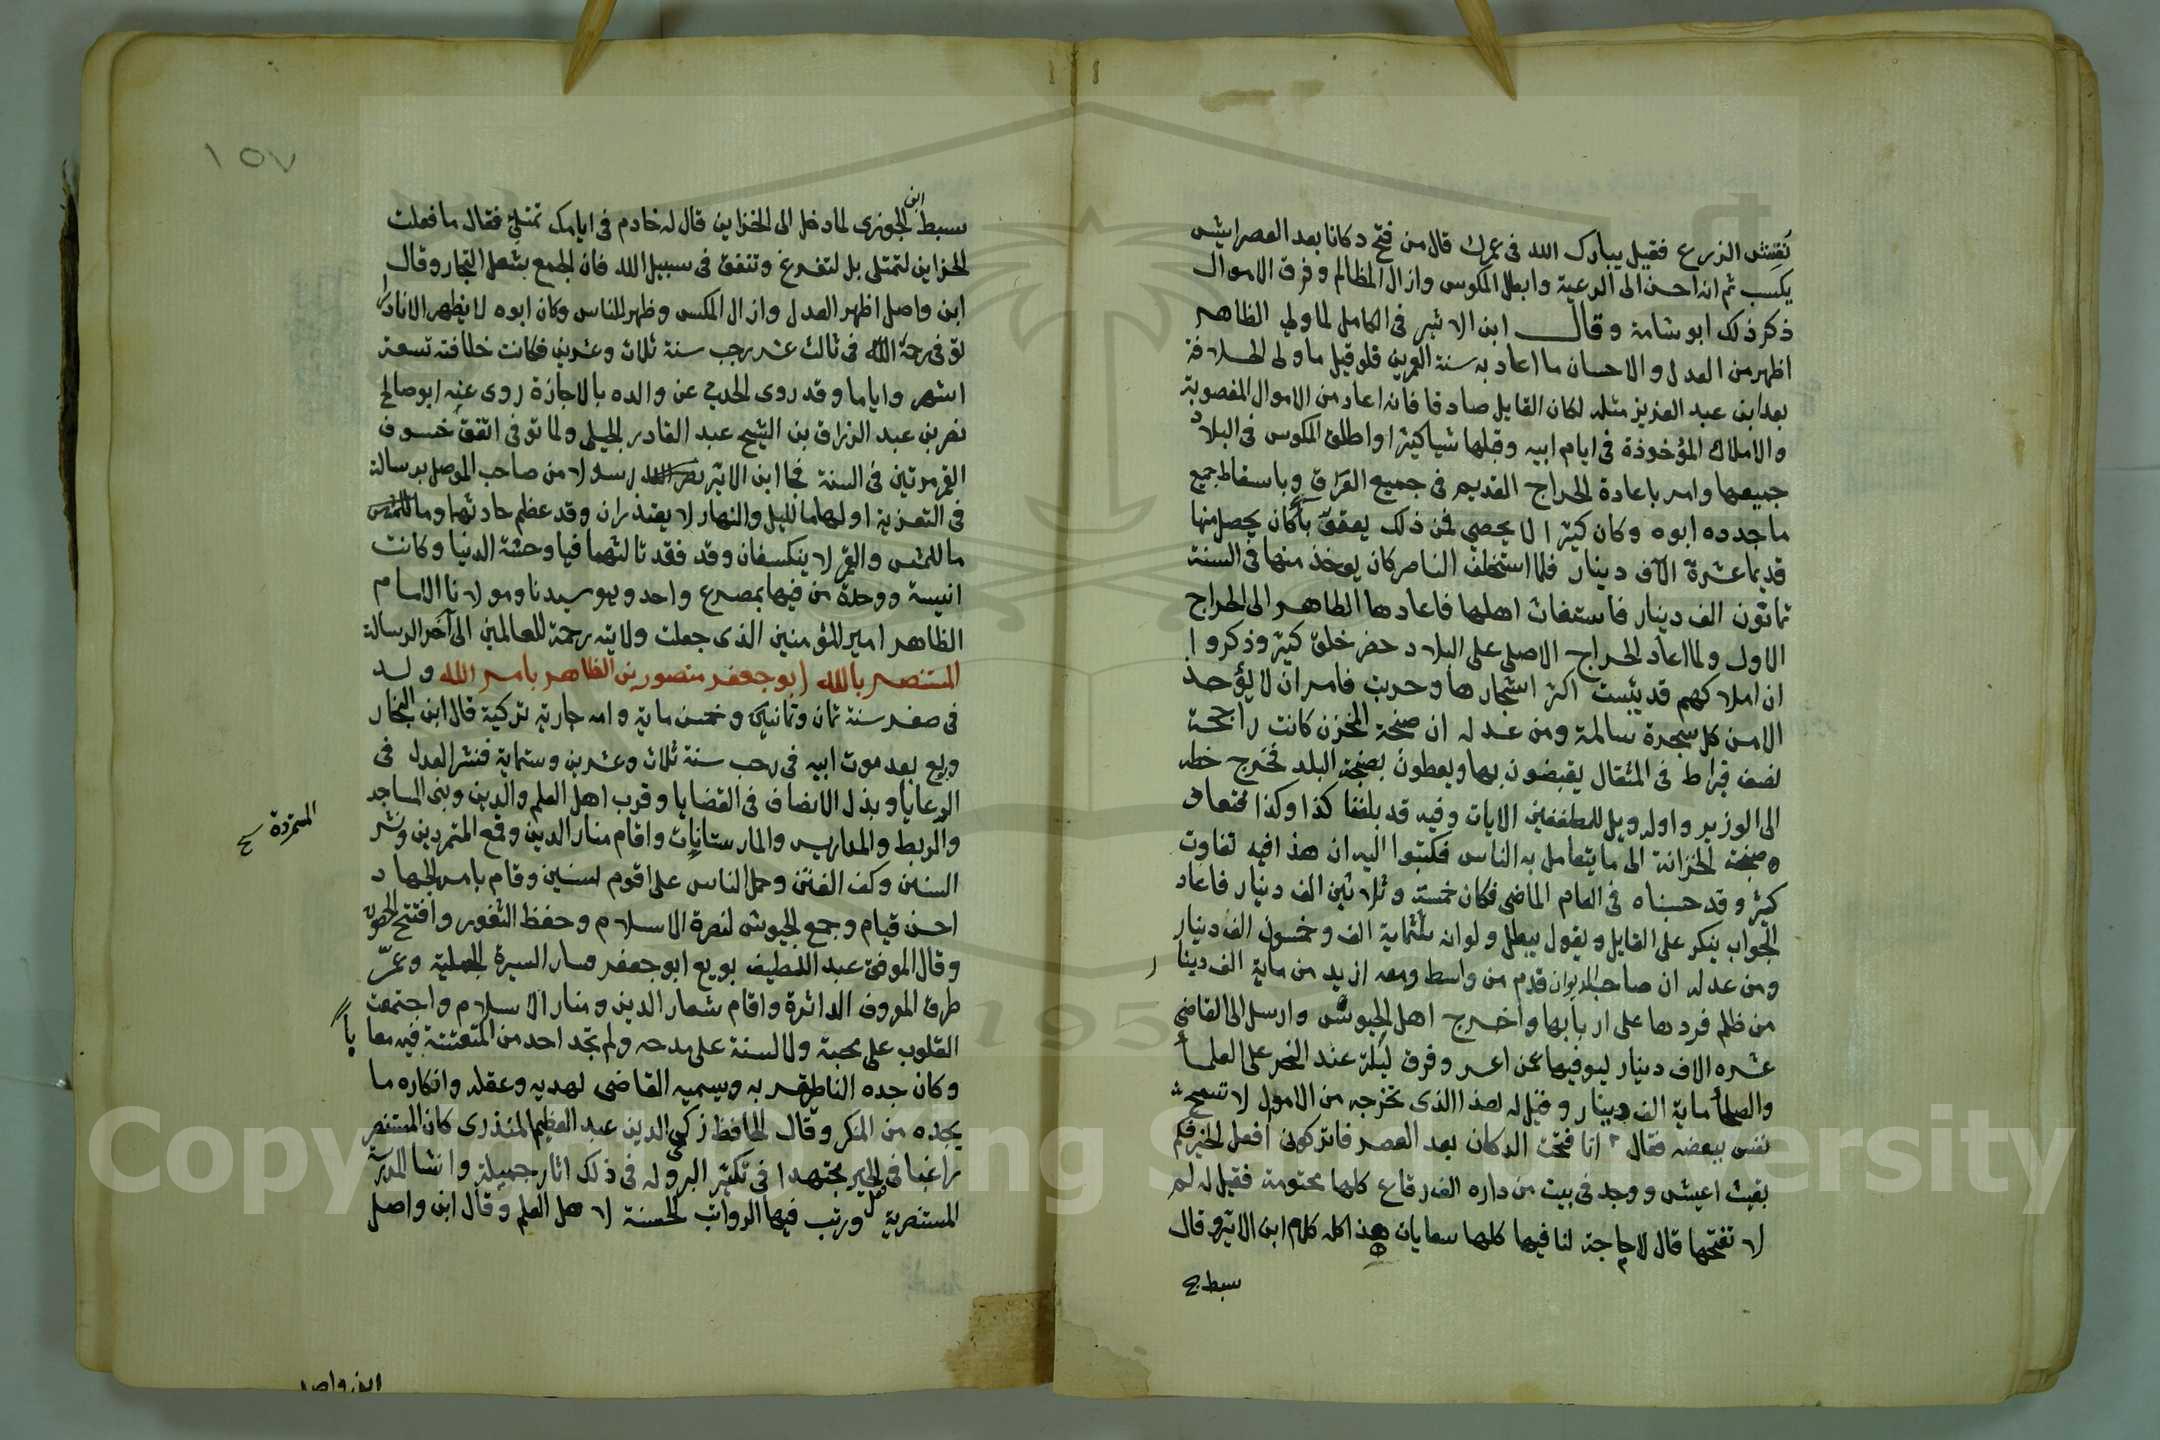 نقتش الزرع فقيل يبارك الله في عمرك قال من فتح دكانا بعد العصر ايش
يكسب ثم انه احسن الى الرعية وابطل المكوس وازال المظالم وفرق الاموال
ذكر ذلك ابو شامة وقال ابن الاثير في الكامل لما ولي الظاهر
اظهر من العدل والاحسان ما اعاد به سنة العمرين فلو قيل ما ولى الخلافة
بعد ابن عبد العزيز مثله لكان القايل صادقا فانه اعاد من الاموال المغصوبة
والاملاك المؤخوذة في ايام ابيه وقبلها شيا كثيرا واطلق المكوس في البلاد
جميعها وامر باعادة الخراج القديم في جميع العراق وباسقاط جميع
ما جدده ابوه وكان كثيرا لا يحصي فمن ذلك يعقوبا كان يحصل منها
قديما عشرة الآف دينار فلما استخلف الناصر كان يوخذ منها في السنة
ثمانون الف دينار فاستغاث اهلها فاعادها الظاهر الى الخراج
الاول ولما اعاد الخراج الاصلي على البلاد حضر خلق كثير وذكروا
ان املاكهم قد يبست اكثر اشجارها وخربت فامر ان لا يؤخذ
الا من كل شجرة سالمة ومن عدله ان صنجة المخزن كانت راجحة
نصف قيراط في المثقال يقبضون بها ويعطون بصنجة البلد فخرج خطه
الى الوزير واوله ويل للمطففين الايات وفيه قد بلغنا كذا وكذا فتعاد
صنجة الخزانة الى ما يتعامل به الناس فكتبوا اليه ان هذا فيه تفاوت
كثير وقد حسبناه في العام الماضي فكان خمسة وثلاثين الف دينار فاعاد
الجواب ينكر على القايل ويقول يبطل ولو انه ثلثماية الف وخمسون الف دينار
ومن عدله ان صاحب الديوان قدم من واسط ومعه ازيد من ماية الف دينار
من ظلم فردها على اربابها واخرج اهل الحبوس وارسل الى القاضي
عشره الاف دينار ليوفيها عن اعسر وفرق ليلة عند النحر على العلمأ
والصلحأ ماية الف دينار وقيل له هذا الذي تخرجه من الاموال لا تسمح
نفس ببعضه فقال انا فتحت الدكان بعد العصر فاتركوني افعل الخير فكم
بقيت اعيش ووجد في بيت من داره الف رقاع كلها مختومة فقيل له لم
لا تفتحها قال لا حاجة لنا فيها كلها سعايات هذا كله كلام ابن الاثير وقال
سبط
١٥٧
سبط ابن الجوزي لما دخل الى الخزاين قال له خادم في ايامك تمتلئ فقال ما فعلت
الخزاين لتمتلى بل لتفرغ وتنفق في سبيل الله فان الجمع بشغل التجار وقال
ابن واصل اظهر العدل وازال المكس وظهر للناس وكان ابوه لا يظهر الا نادرا
توفى رحمة الله في ثالث عشر رجب سنة ثلاث وعشرين فكانت خلافته تسعة
اشهر واياما وقد روى الحديث عن والده بالاجازة روى عنه ابو صالح
نصر بن عبد الرزاق بن الشيخ عبد القادر الجيلي ولما توفى اتفق خسوف
القمر مرتين في السنة فجا ابن الاثير نصر الله رسولا من صاحب الموصل برسالة
في التعزية اولها ما لليل والنهار لا يعتذران وقد عظم حادثهما وما للشمس
ما للشمس والقمر لا ينكسفان وقد فقد ثالثهما فيا وحشة الدنيا وكانت
انيسة ووحدة من فيها بمصرع واحد وهو سيدنا ومولانا الامام
الظاهر امير المؤمنين الذي جعلت ولايته رحمة للعالمين الى آخر الرسالة
المستنصر بالله ابو جعفر منصور بن الظاهر بامر الله ولد
في صفر سنة ثمان وثمانين وخمس ماية وامه جارية تركية قال ابن النجار
وبويع بعد موت ابيه في رجب سنة ثلاث وعشرين وستماية فنشر العدل في
الرعايا وبذل الانصاف في القضايا وقرب اهل العلم والدين وبنى المساجد
والربط والمدارس والمارستانات واقام منار الدين وقمع المتمردين ونشر
المتمردة
السنن وكف الفتن وحمل الناس على اقوم سنن وقام بامر الجهاد
احسن قيام وجمع الجيوش لنصرة الاسلام وحفظ الثغور وافتتح الحصون
وقال الموفق عبد اللطيف بويع ابو جعفر وسار السيرة الجميلة وعمّر
طرق المعروف الداثرة واقام شعار الدين ومنار الاسلام واجتمعت
القلوب على محبة والالسنة على مدحه ولم تجد احد من المتعنتة فيه معابا
وكان جده الناصر يقربه ويسميه القاضي لهديه وعقله وانكاره ما
يجده من المنكر وقال الحافظ زكي الدين عبد العظيم المنذري كان المستنصر
راغبا في الخير مجتهدا في تكثير البر وله في ذلك اثار جميلة وانشا المدرسة
المستنصرية ورتب فيها الرواتب الحسنة لاهل العلم وقال ابن واصل
ابن واصل
Copyright © King Saud University
195